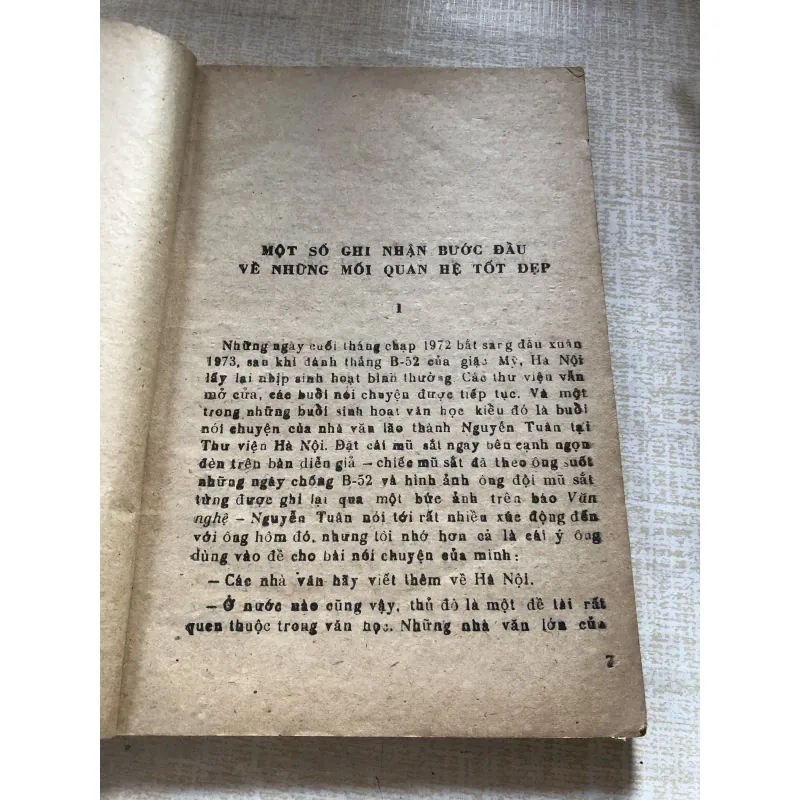 MỘT SỐ GHI NHẬN BƯỚC ĐẦU
VỀ NHỮNG MỐI QUAN HỆ TỐT ĐẸP
1
Những ngày cuối tháng chạp 1972 bắt sang đầu xuân
1973, sau khi đánh thắng B-52 của giặc Mỹ, Hà Nội
lấy lại nhịp sinh hoạt bình thường Các thư viện vẫn
mở cửa, các buổi nói chuyện được tiếp tục. Và một
trong những buổi sinh hoạt văn học kiểu đó là buổi
nói chuyện của nhà văn lão thành Nguyễn Tuân tại
Thư viện Hà Nội. Đặt cái mũ sắt ngay bên cạnh ngọn
đèn trên bàn diễn giả – chiếc mũ sắt đã theo ông suốt
những ngày chống B-52 và hình ảnh ông đội mũ sắt
từng được ghi lại qua một bức ảnh trên báo Văn
nghệ – Nguyễn Tuân nói tới rất nhiều xúc động đến
với ông hôm đó, nhưng tôi nhớ hơn cả là cái ý ông
dùng vào đề cho bài nói chuyện của mình:
– Các nhà văn hãy viết thêm về Hà Nội.
– Ở nước nào cũng vậy, thủ đô là một đề tài rất
quen thuộc trong văn học. Những nhà văn lớn của
7